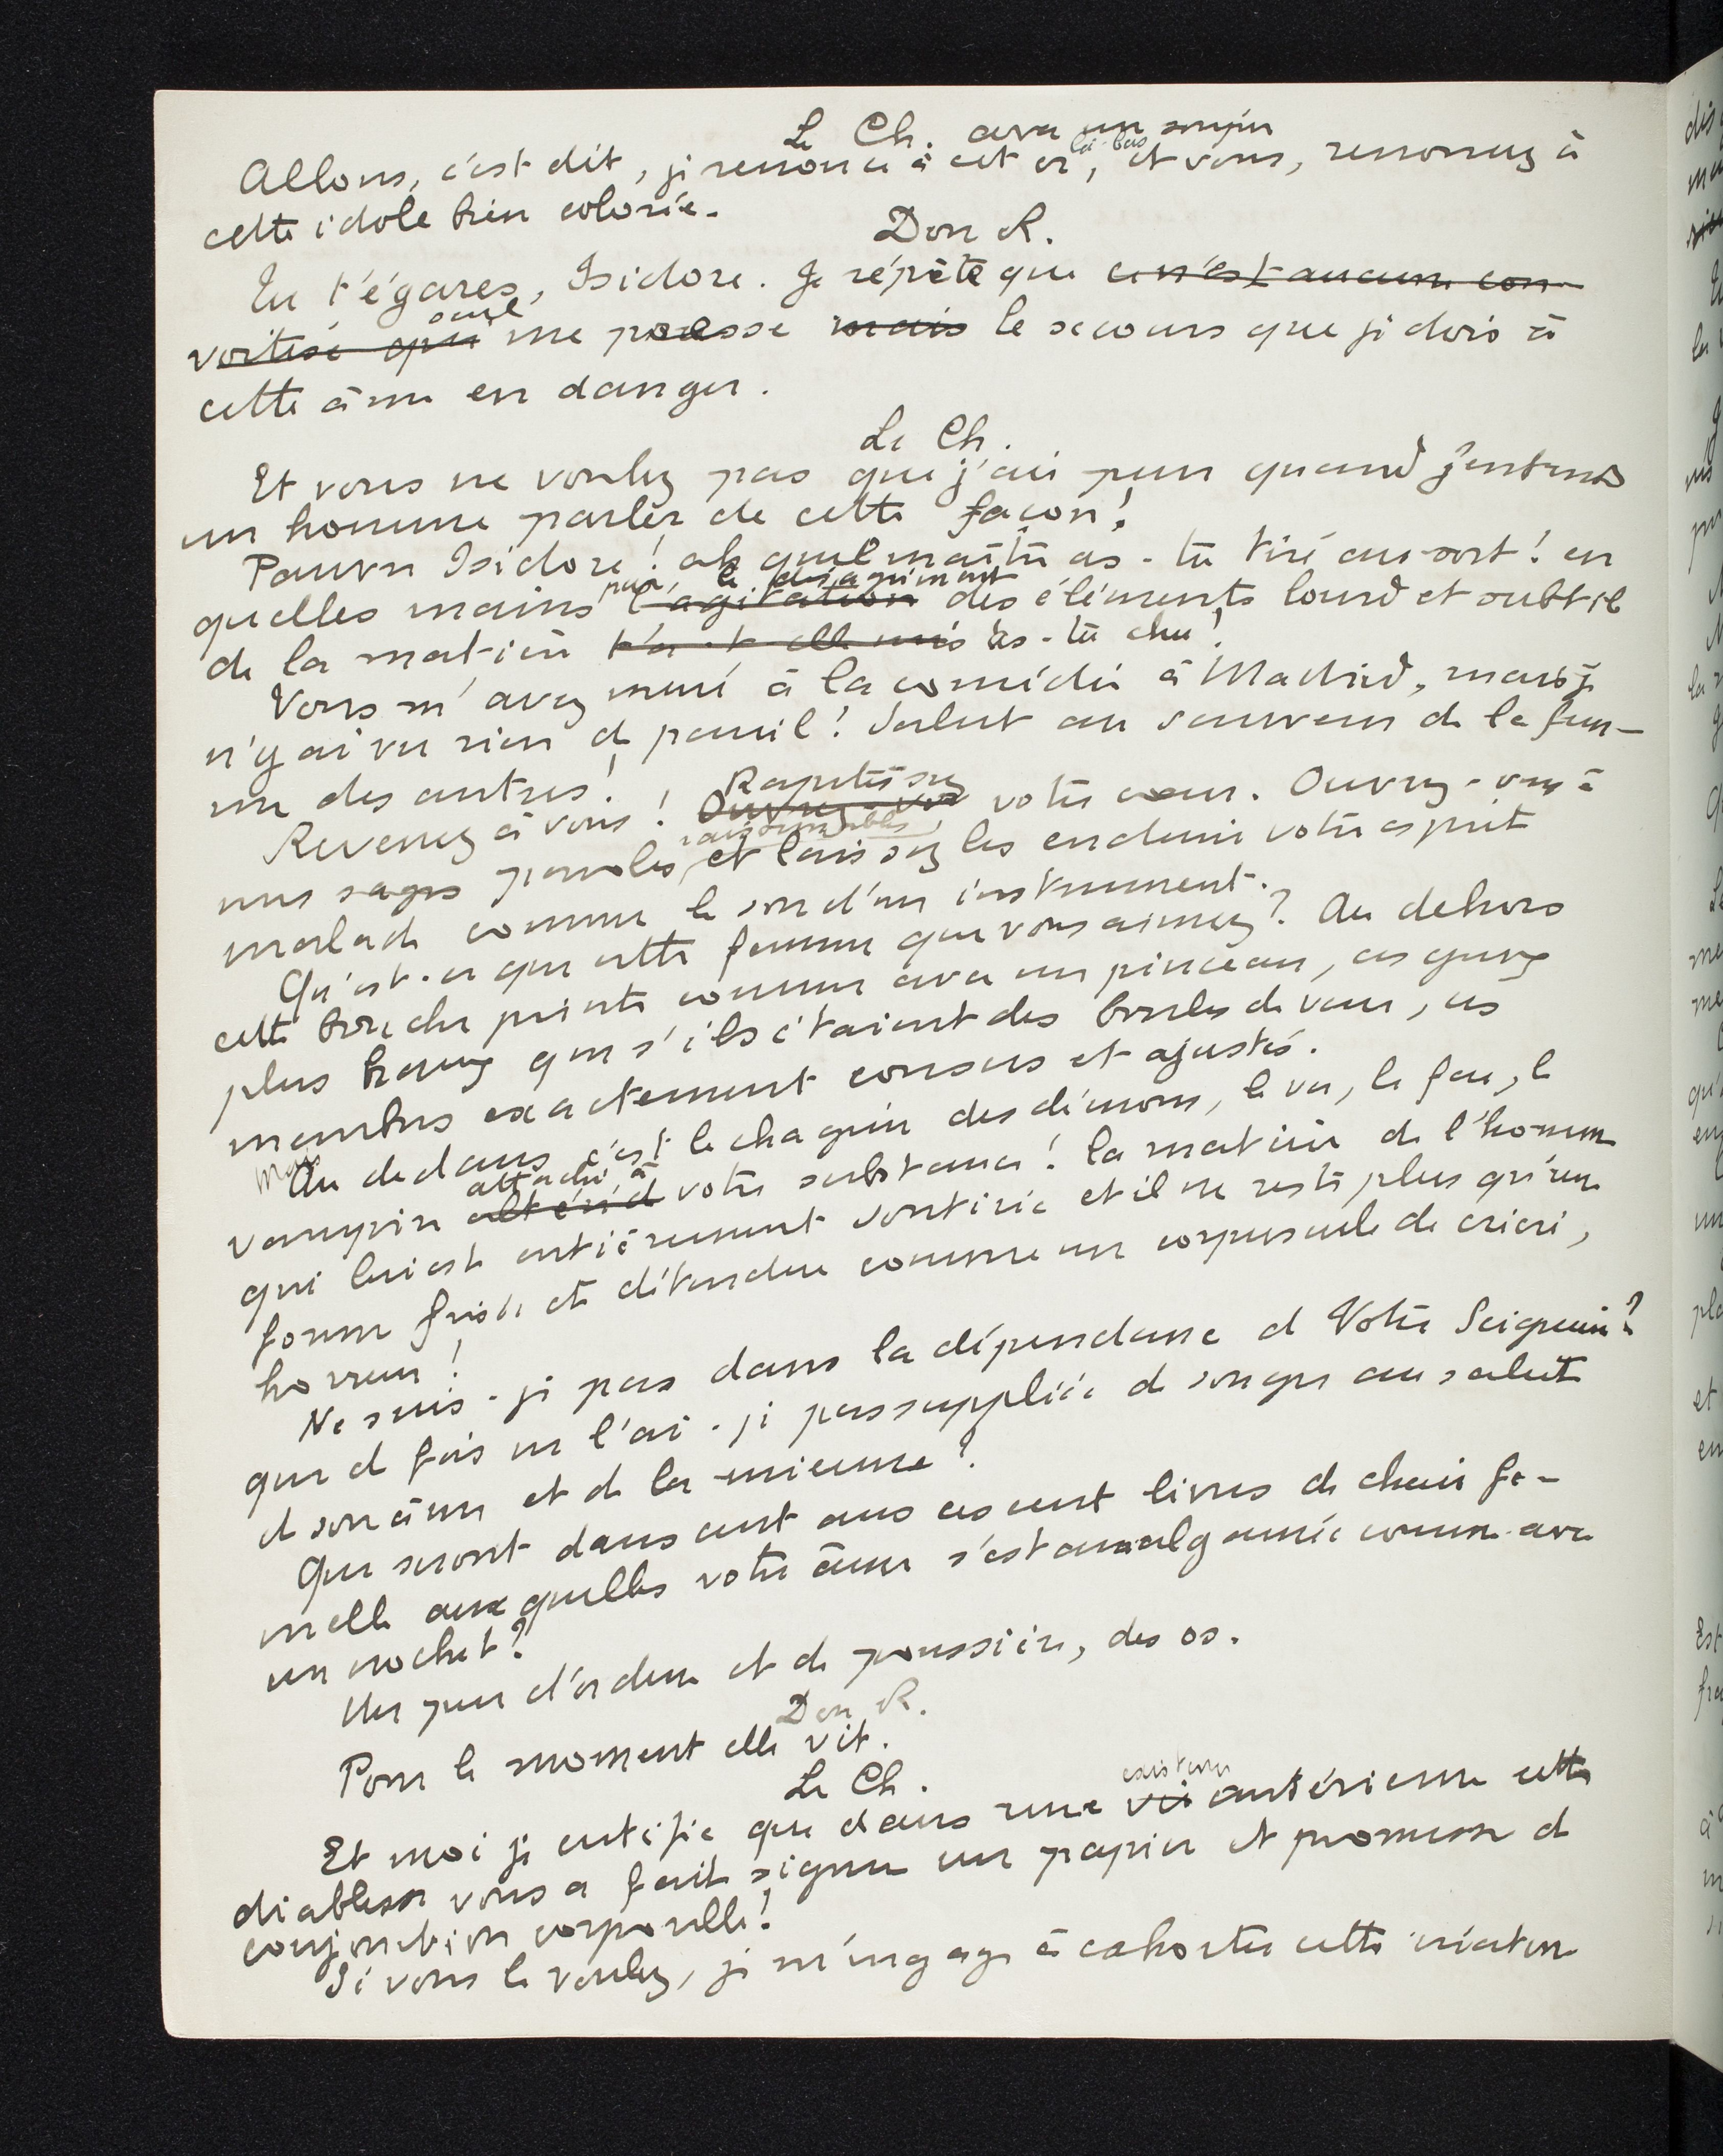 Le Ch. avec un soupir
Allons, c'est dit, je renonce à cet or, là-bas et vous, renoncez à
cette idole bien coloriée.
Don R.
Tu t'égares, Isidore. Je répète que ce n'est aucune con-
voitise qui seul me presse mais le secours que je dois à
cette âme en danger.
Le Ch.
Et vous ne voulez pas que j'aie peur quand j'entends
un homme parler de cette façon!
Pauvre Isidore! ah quel maître as-tu tiré au sort! en
quelles mains par le désagrément l'agitation des éléments lourd et subtil
de la matière t'a-t-elle mis es-tu chu!
Vous m'avez mené à la comédie à Madrid, mais je
n'y ai vu rien de pareil! Salut au sauveur de la fem-
me des autres!
Revenez à vous! Ouvrez-vous Rapetissez votre cœur. Ouvrez-vous à
mes sages paroles raisonnables, et laissez les enduire votre esprit
malade comme le son d'un instrument.
Qu'est-ce que cette femme que vous aimez? Au dehors
cette bouche peinte comme avec un pinceau, ces yeux
plus beaux que s'ils étaient des boules de verre, ces
membres exactement cousus et ajustés.
Mais Au dedans c'est le chagrin des démons, le ver, le feu, le
vampire altéré d attaché à votre substance! la matière de l'homme
qui lui est entièrement soutirée et il ne reste plus qu'une
forme frise et détendue comme un corpuscule de cricri,
horreur!
Ne suis-je pas dans la dépendance de Votre Seigneurie?
que de fois ne l'ai-je pas suppliée de songer au salut
de son âme et de la mienne?
Que seront dans cent ans ces cent livres de chair fe-
melle auxquelles votre âme s'est amalgamée comme avec
un crochet?
Un peu d'ordure et de poussière, des os.
Don R.
Pour le moment elle vit.
Le Ch.
Et moi je certifie que dans une vie existence antérieure cette
diablesse vous a fait signer un papier et promesse de
conjonction corporelle!
Si vous le voulez, je m'engage à exhorter cette créature